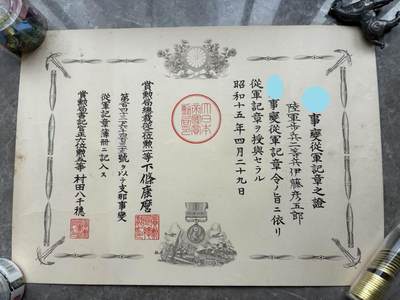 事變從軍記章之證
陸軍步兵一等兵伊藤彥五郎
事變從軍記章令ノ旨ニ依リ
從軍記章ヲ授與セラル
昭和十五年四月二十九日
大日本
賞勲局總裁從三位勲一等下條康麿
號ヲ以テ支那事變
從軍記章簿册ニ記入ス
賞勲局書記官正六位勲五等村田八千穗